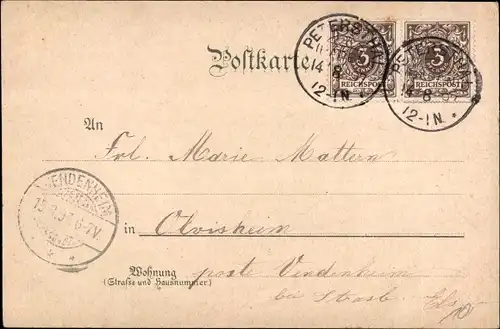 Postkarte
PETERSTHAL
14 8
12-1N.
3
REICHSPOST
PETERSTHAL
14 8 97
12-1N.
3
REICHSPOST
An
Frl. Marie Mattern
VENDENHEIM
15 8 97 6-7V
in Olvisheim
Wohnung
(Strasse und Hausnummer)
poste Vendenheim
bei Strasb Els